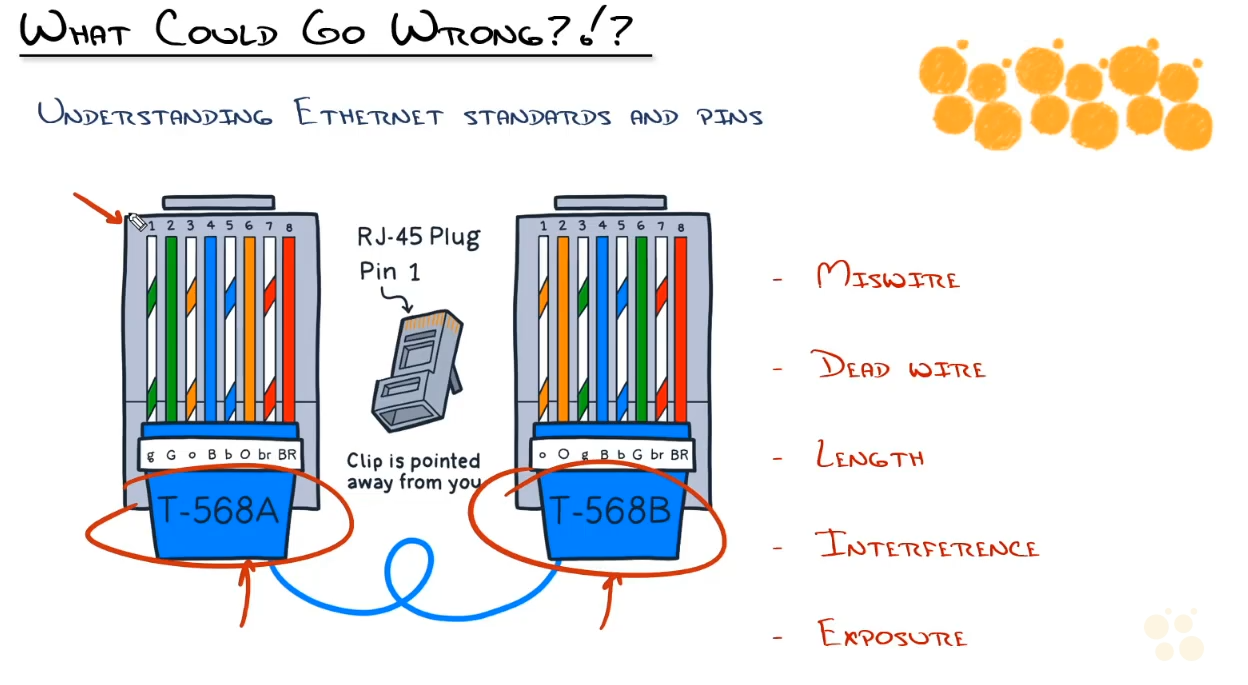 What Could Go Wrong?!?
Understanding Ethernet standards and pins
1 2 3 4 5 6 7 8
g G o B b O br BR
T-568A
RJ-45 Plug
Pin 1
Clip is pointed
away from you
1 2 3 4 5 6 7 8
o O g B b G br BR
T-568B
- Miswire
- Dead wire
- Length
- Interference
- Exposure